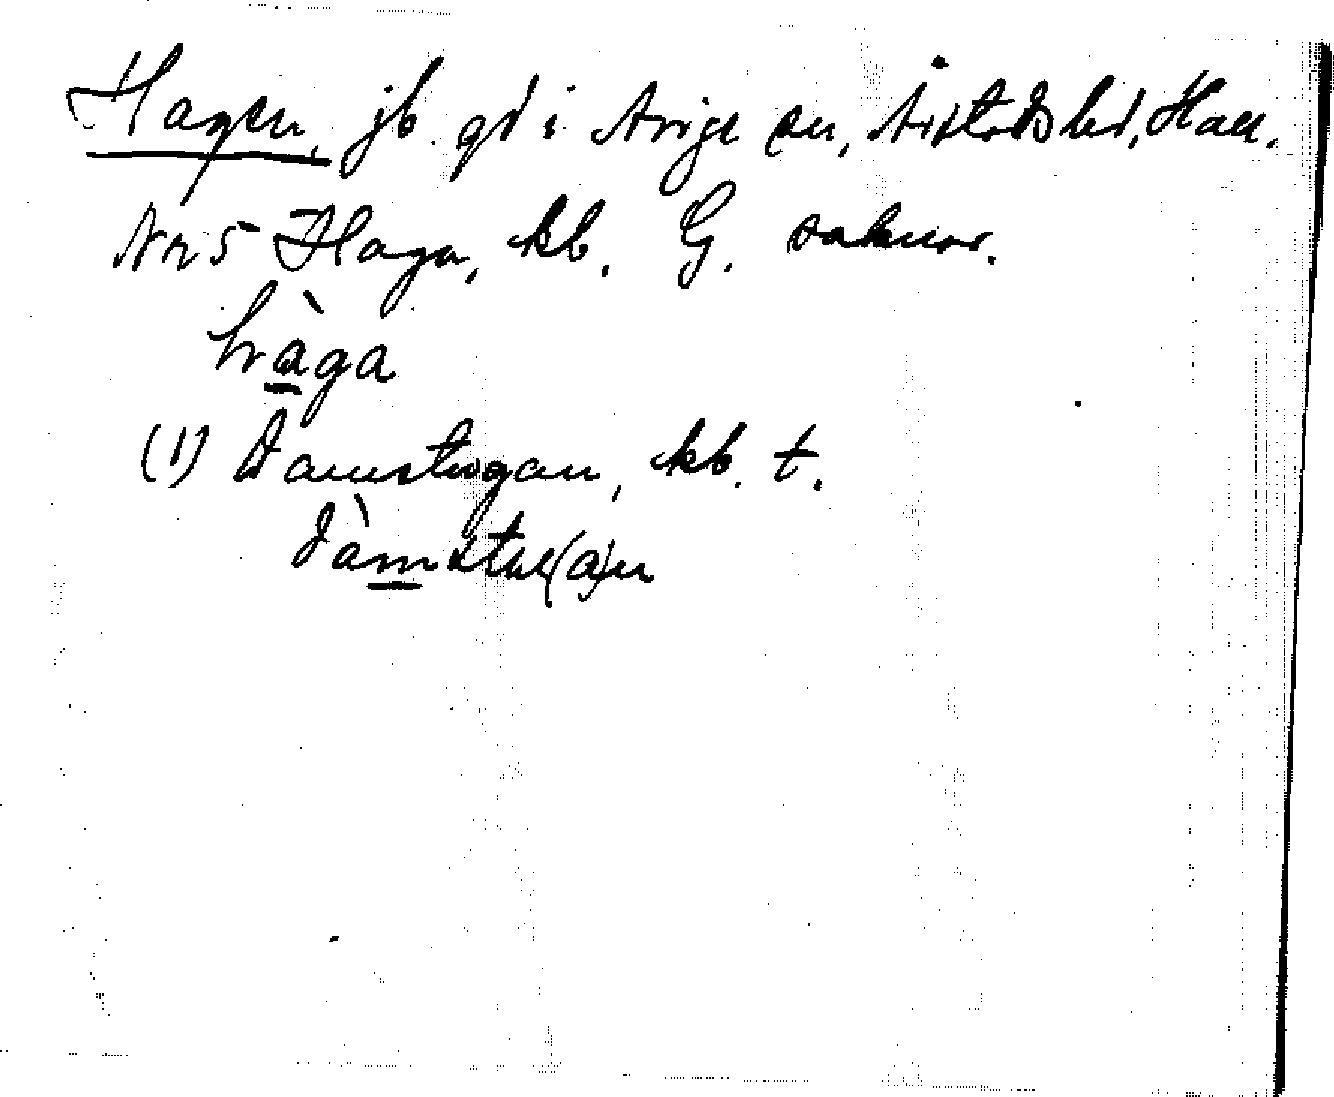 Hagen, jb. gd i Arige sn, Årstads hd, Hall.
Nr 5 Haga, kb. G. saknas.
hàga
(1) Damstugan, kb. t.
dàmstu(a)n